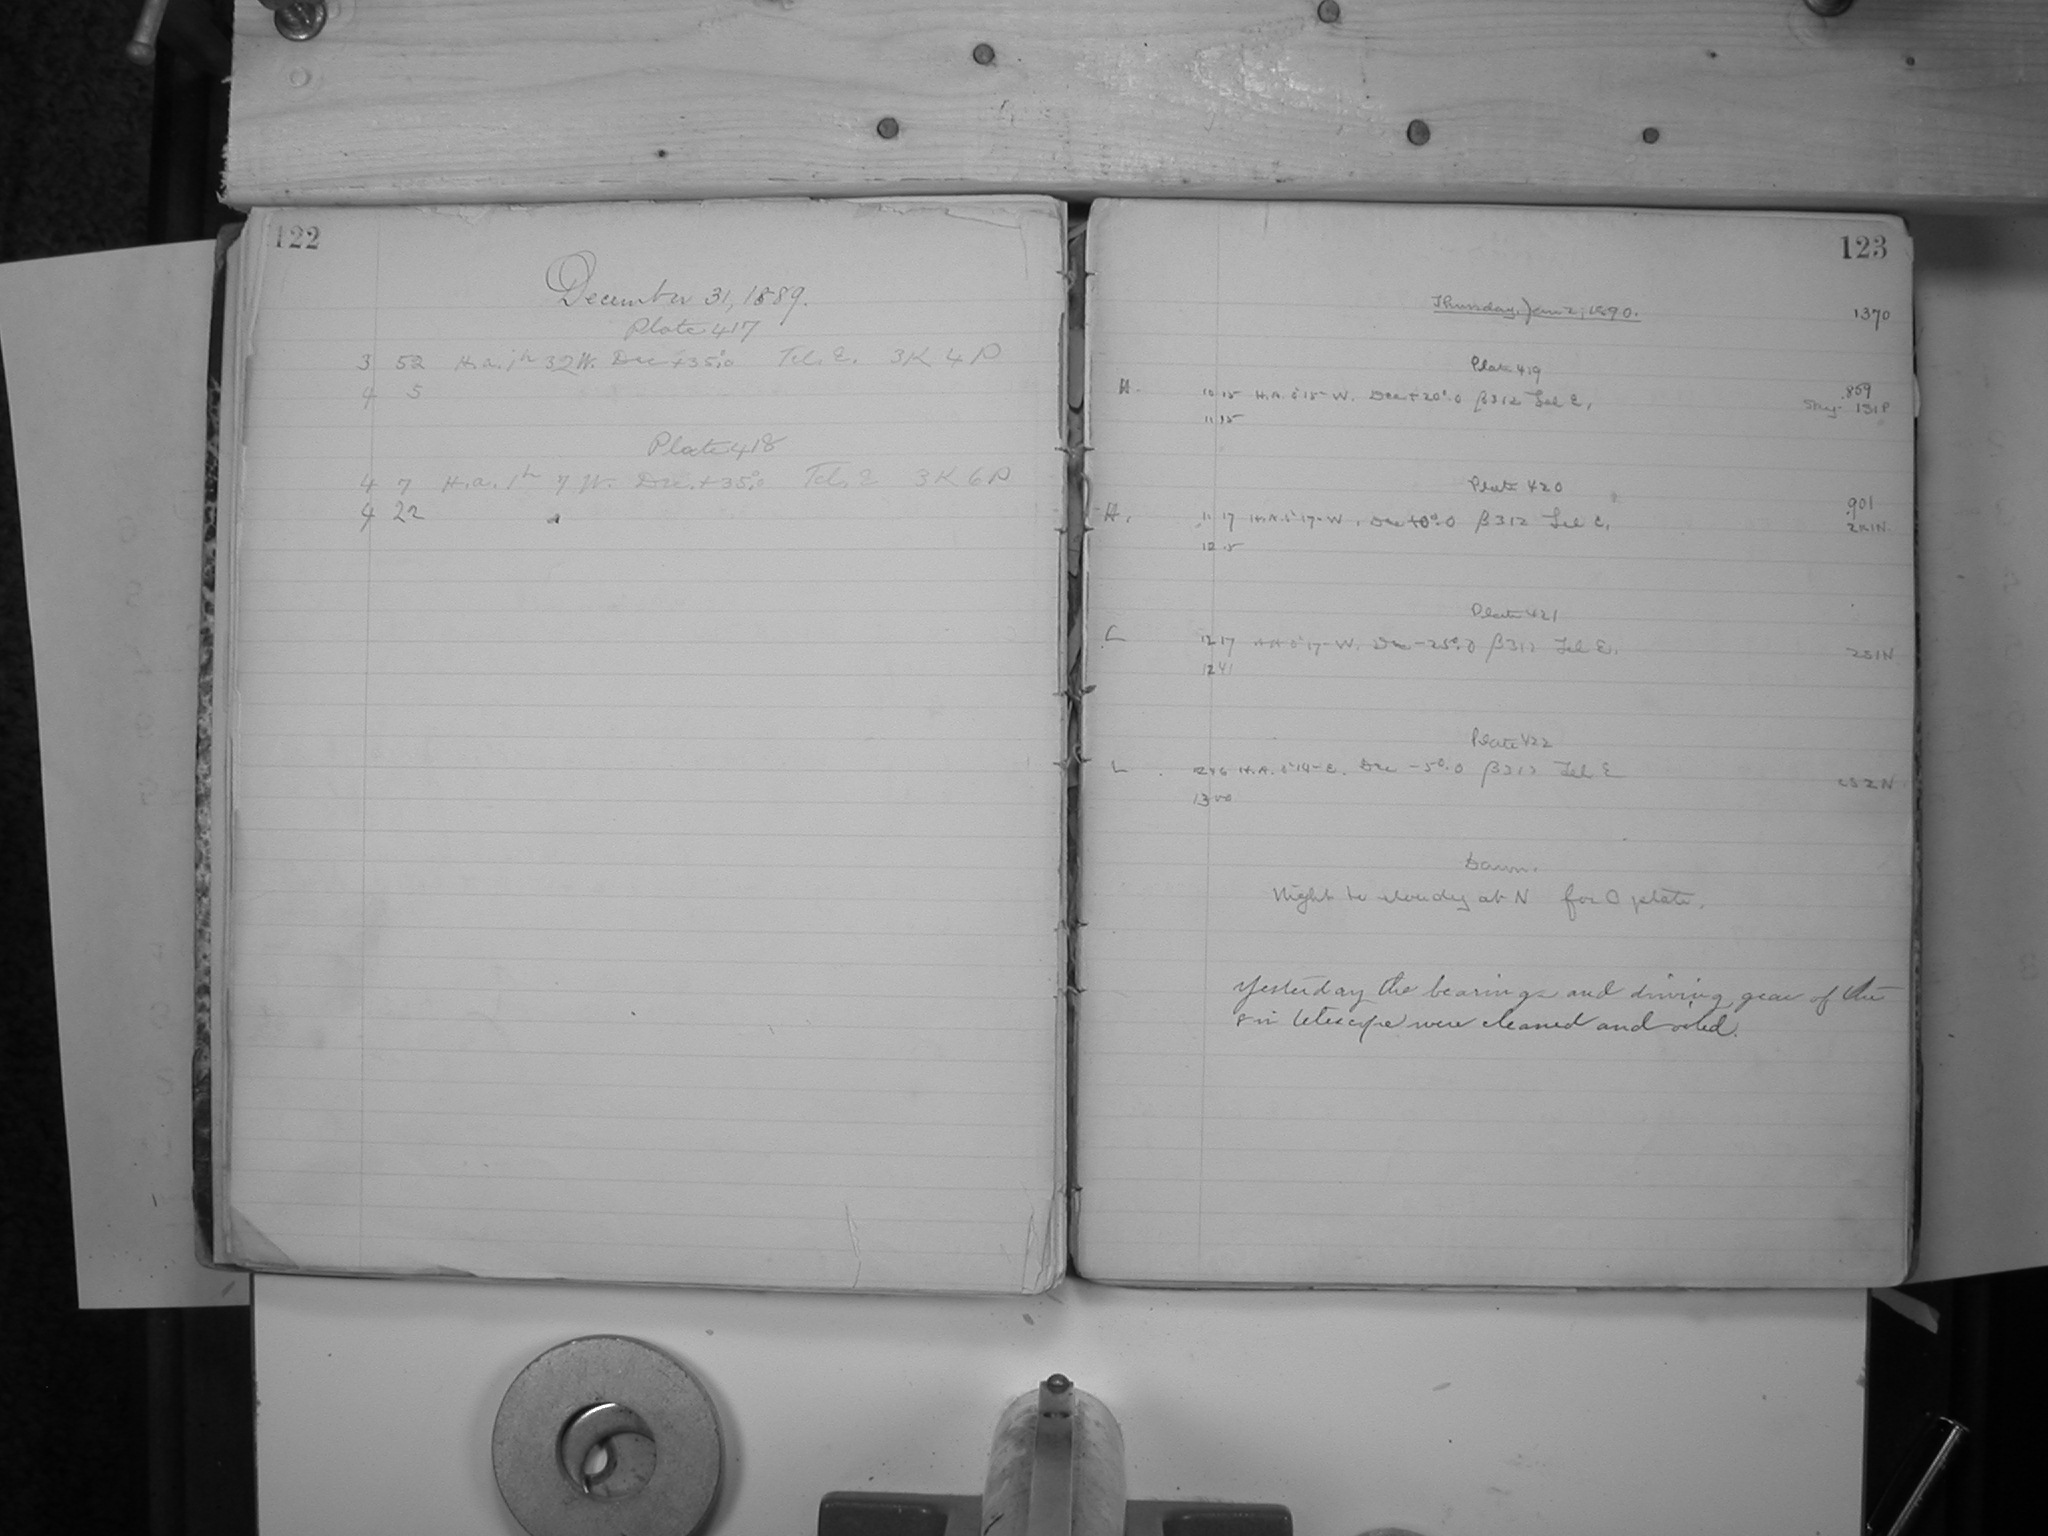 122
December 31, 1889.
Plate 417
3 52 H.a. 1h 32 W. Dec. +35°.0 Tel. E. 3K 4P
4 5
Plate 418
4 7 H.a. 1h 7 W. Dec. +35°.0 Tel. E 3K 6P
4 22
123
Thursday, Jan 2, 1890.
1370
Plate 419
859
H. 10 15 H.A. 0h 15m W. Dec + 20°.0 β312 Tel E.
Sky 1S1P
11 15
Plate 420
901
H. 11 17 H.A. 0h 17m W. Dec +0°.0 β312 Tel E.
2K1N
12 15
Plate 421
L 12 17 H.A. 0h 17m W. Dec -25°.0 β312 Tel E.
2S1N
12 41
Plate 422
L H.A. 0h 14m E. Dec -5°.0 β312 Tel E
S2N
13 00
Dawn.
Night to cloudy at N for O plate.
Yesterday the bearings and driving gear of the
8 in telescope were cleaned and oiled.